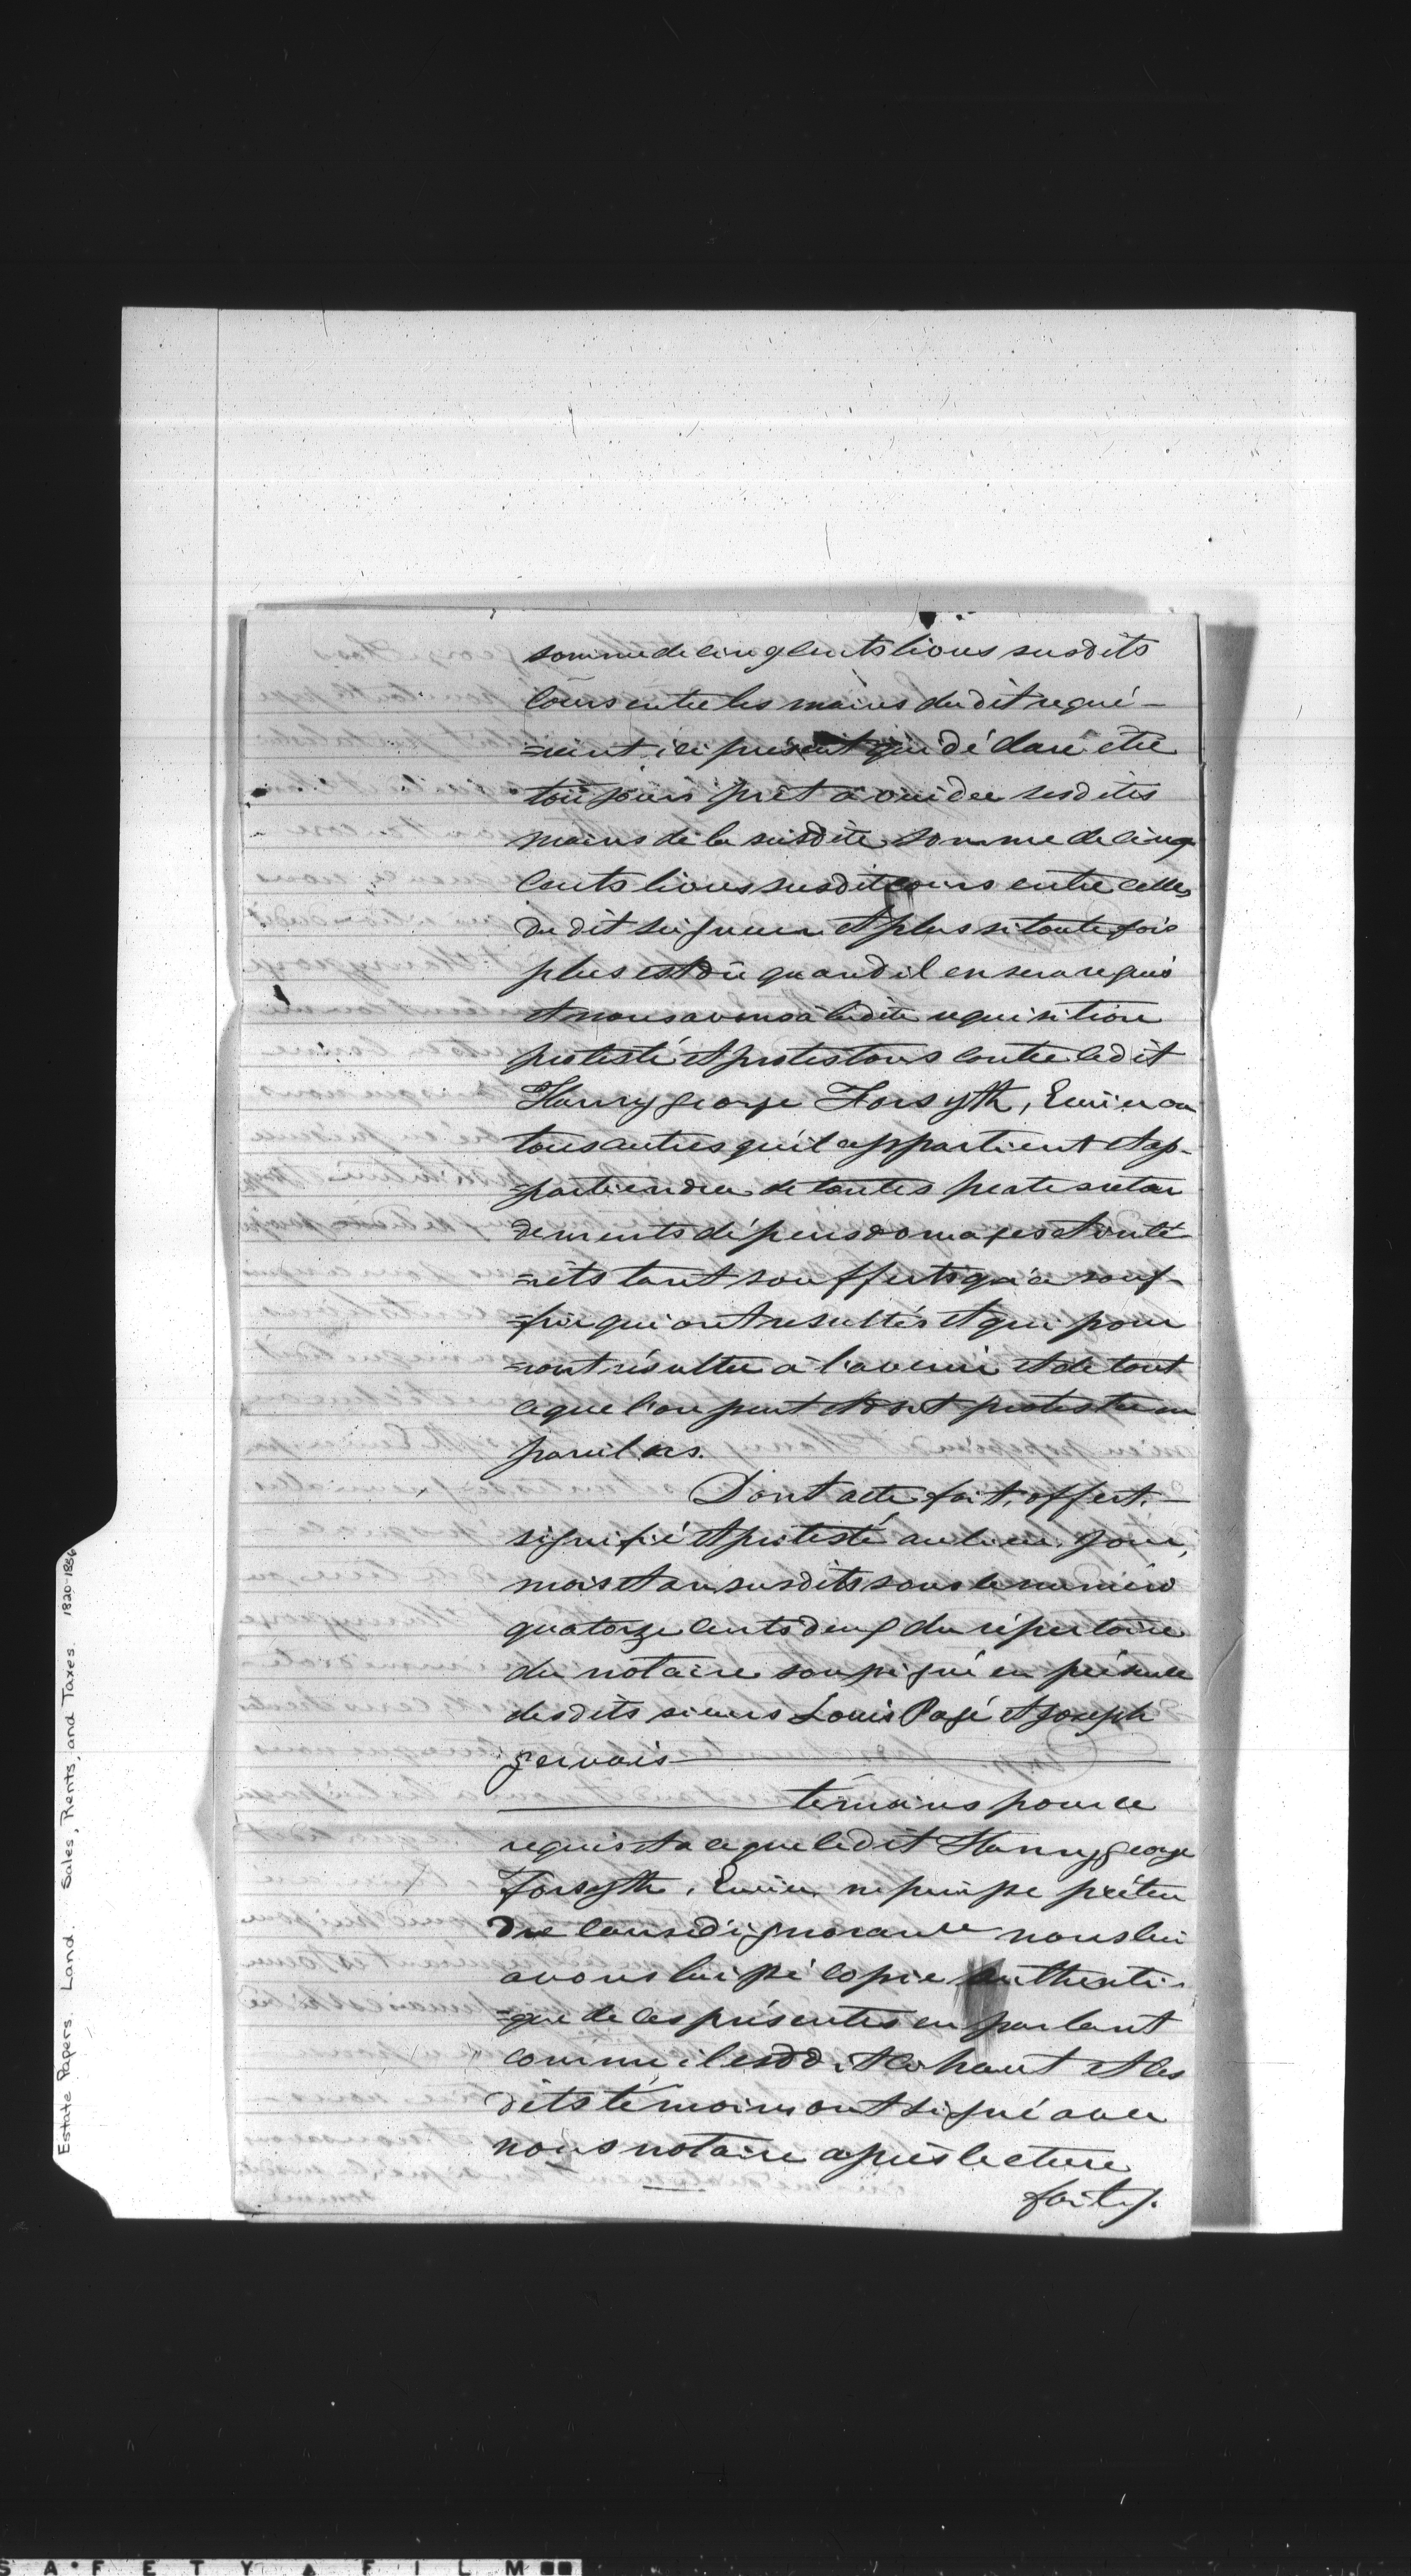 somme de cinq cents livres susdits
cours entre les mains du dit requé-
=rant ici présent qui déclare être
toujours prêt à vuider ses dites
mains de la susdite somme de cinq
cents livres susdit cours entre celles
du dit seigneur et plus si toute fois
plus est dû quand il en sera requis
et nous avons à ladite requisition
protesté et protestons contre le dit
Henry george Forsyth, Ecuier ou
tous autres qu'il appartient et ap-
=partiendra de toutes pertes retar
dements dépens domages et inté-
=rêts tant soufferts qu'à souf-
=frir qui ont resultés et qui pour
=ront résulter à l'avenir et de tout
ce que l'on peut et doit protester en
pareil cas.
Dont acte fait, offert,
signifié et protesté au lieu, jour,
mois et an susdits sous le numéro
quatorze cents deux du répertoire
du notaire soussigné en présence
des dits sieurs Louis Pagé et Joseph
gervais
témoins pour ce
requis et a ce que le dit Henry george
Forsyth, Ecuier, ne puisse préten
dre cause d'ignorance nous lui
avons laissé copie authenti-
=que de ces présentes en parlant
comme il est dit ci haut et les
dits témoins ont signé avec
nous notaire après lecture
faite/.
Estate Papers. Land. Sales, Rents, and Taxes. 1820-1856
SAFETY FILM